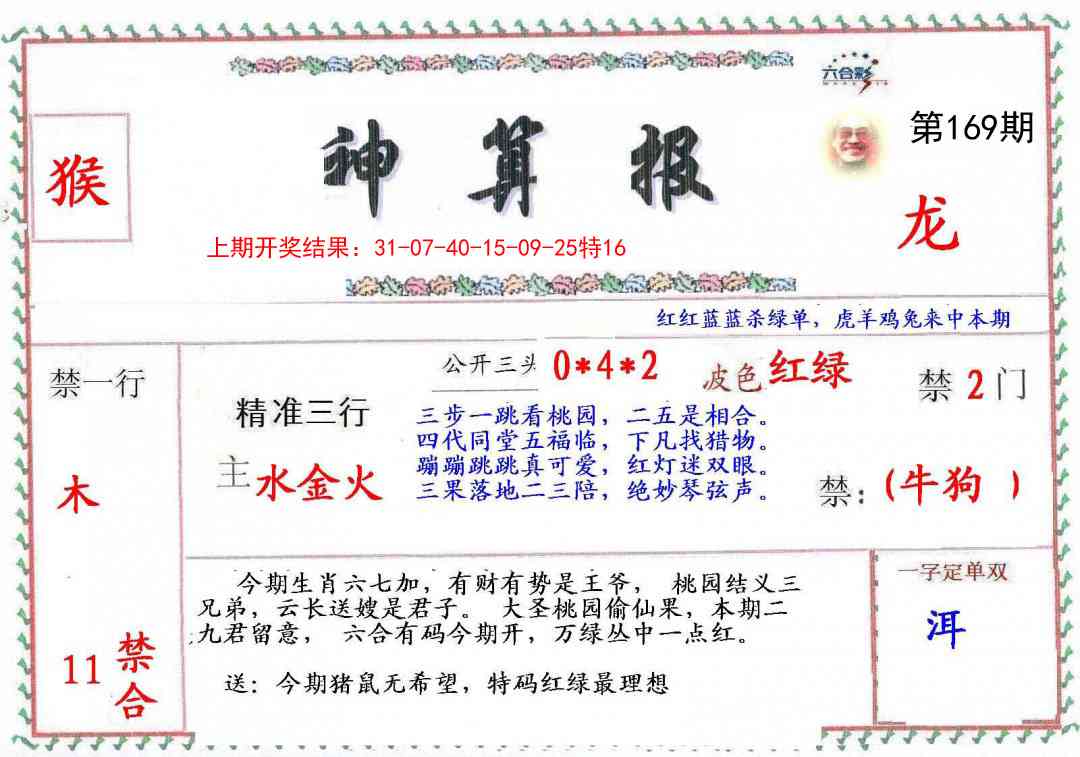 六合彩
猴
神算报
第169期
龙
上期开奖结果：31-07-40-15-09-25特16
红红蓝蓝杀绿单，虎羊鸡兔来中本期
禁一行
公开三头 0*4*2 波色 红绿
禁 2 门
精准三行
三步一跳看桃园，二五是相合。
四代同堂五福临，下凡找猎物。
蹦蹦跳跳真可爱，红灯迷双眼。
三果落地二三陪，绝妙琴弦声。
木
主 水金火
禁：(牛狗 )
今期生肖六七加，有财有势是王爷， 桃园结义三
兄弟，云长送嫂是君子。 大圣桃园偷仙果，本期二
九君留意， 六合有码今期开，万绿丛中一点红。
送：今期猪鼠无希望，特码红绿最理想
一字定单双
洱
11 禁合